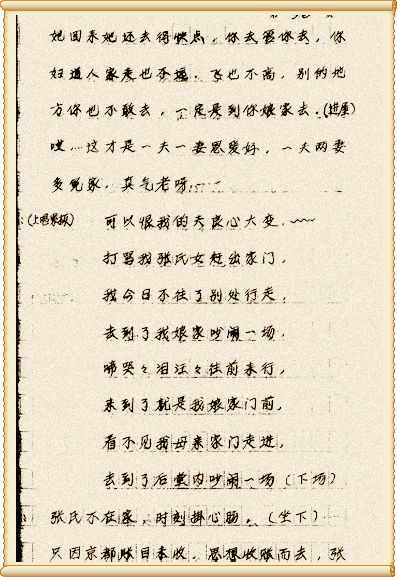 她回来她还去得快点，你去罢你去，你
妇道人家走也不远，飞也不高，别的地
方你也不敢去，一定是到你娘家去。(进屋)
哎…这才是一夫一妻恩爱好，一夫两妻
多冤家，真气老呀……
(上唱紧板) 可以恨我的夫良心大变，
打骂我张氏女赶出家门，
我今日不往了别处行走，
去到了我娘家吵闹一场，
啼哭々泪汪々往前来行，
来到了就是我娘家门前，
看不见我母亲家门走进，
去到了后堂内吵闹一场（下场）
张氏不在家，时刻掛心肠。（坐下）
只因京都账目未收，思想收账而去，张